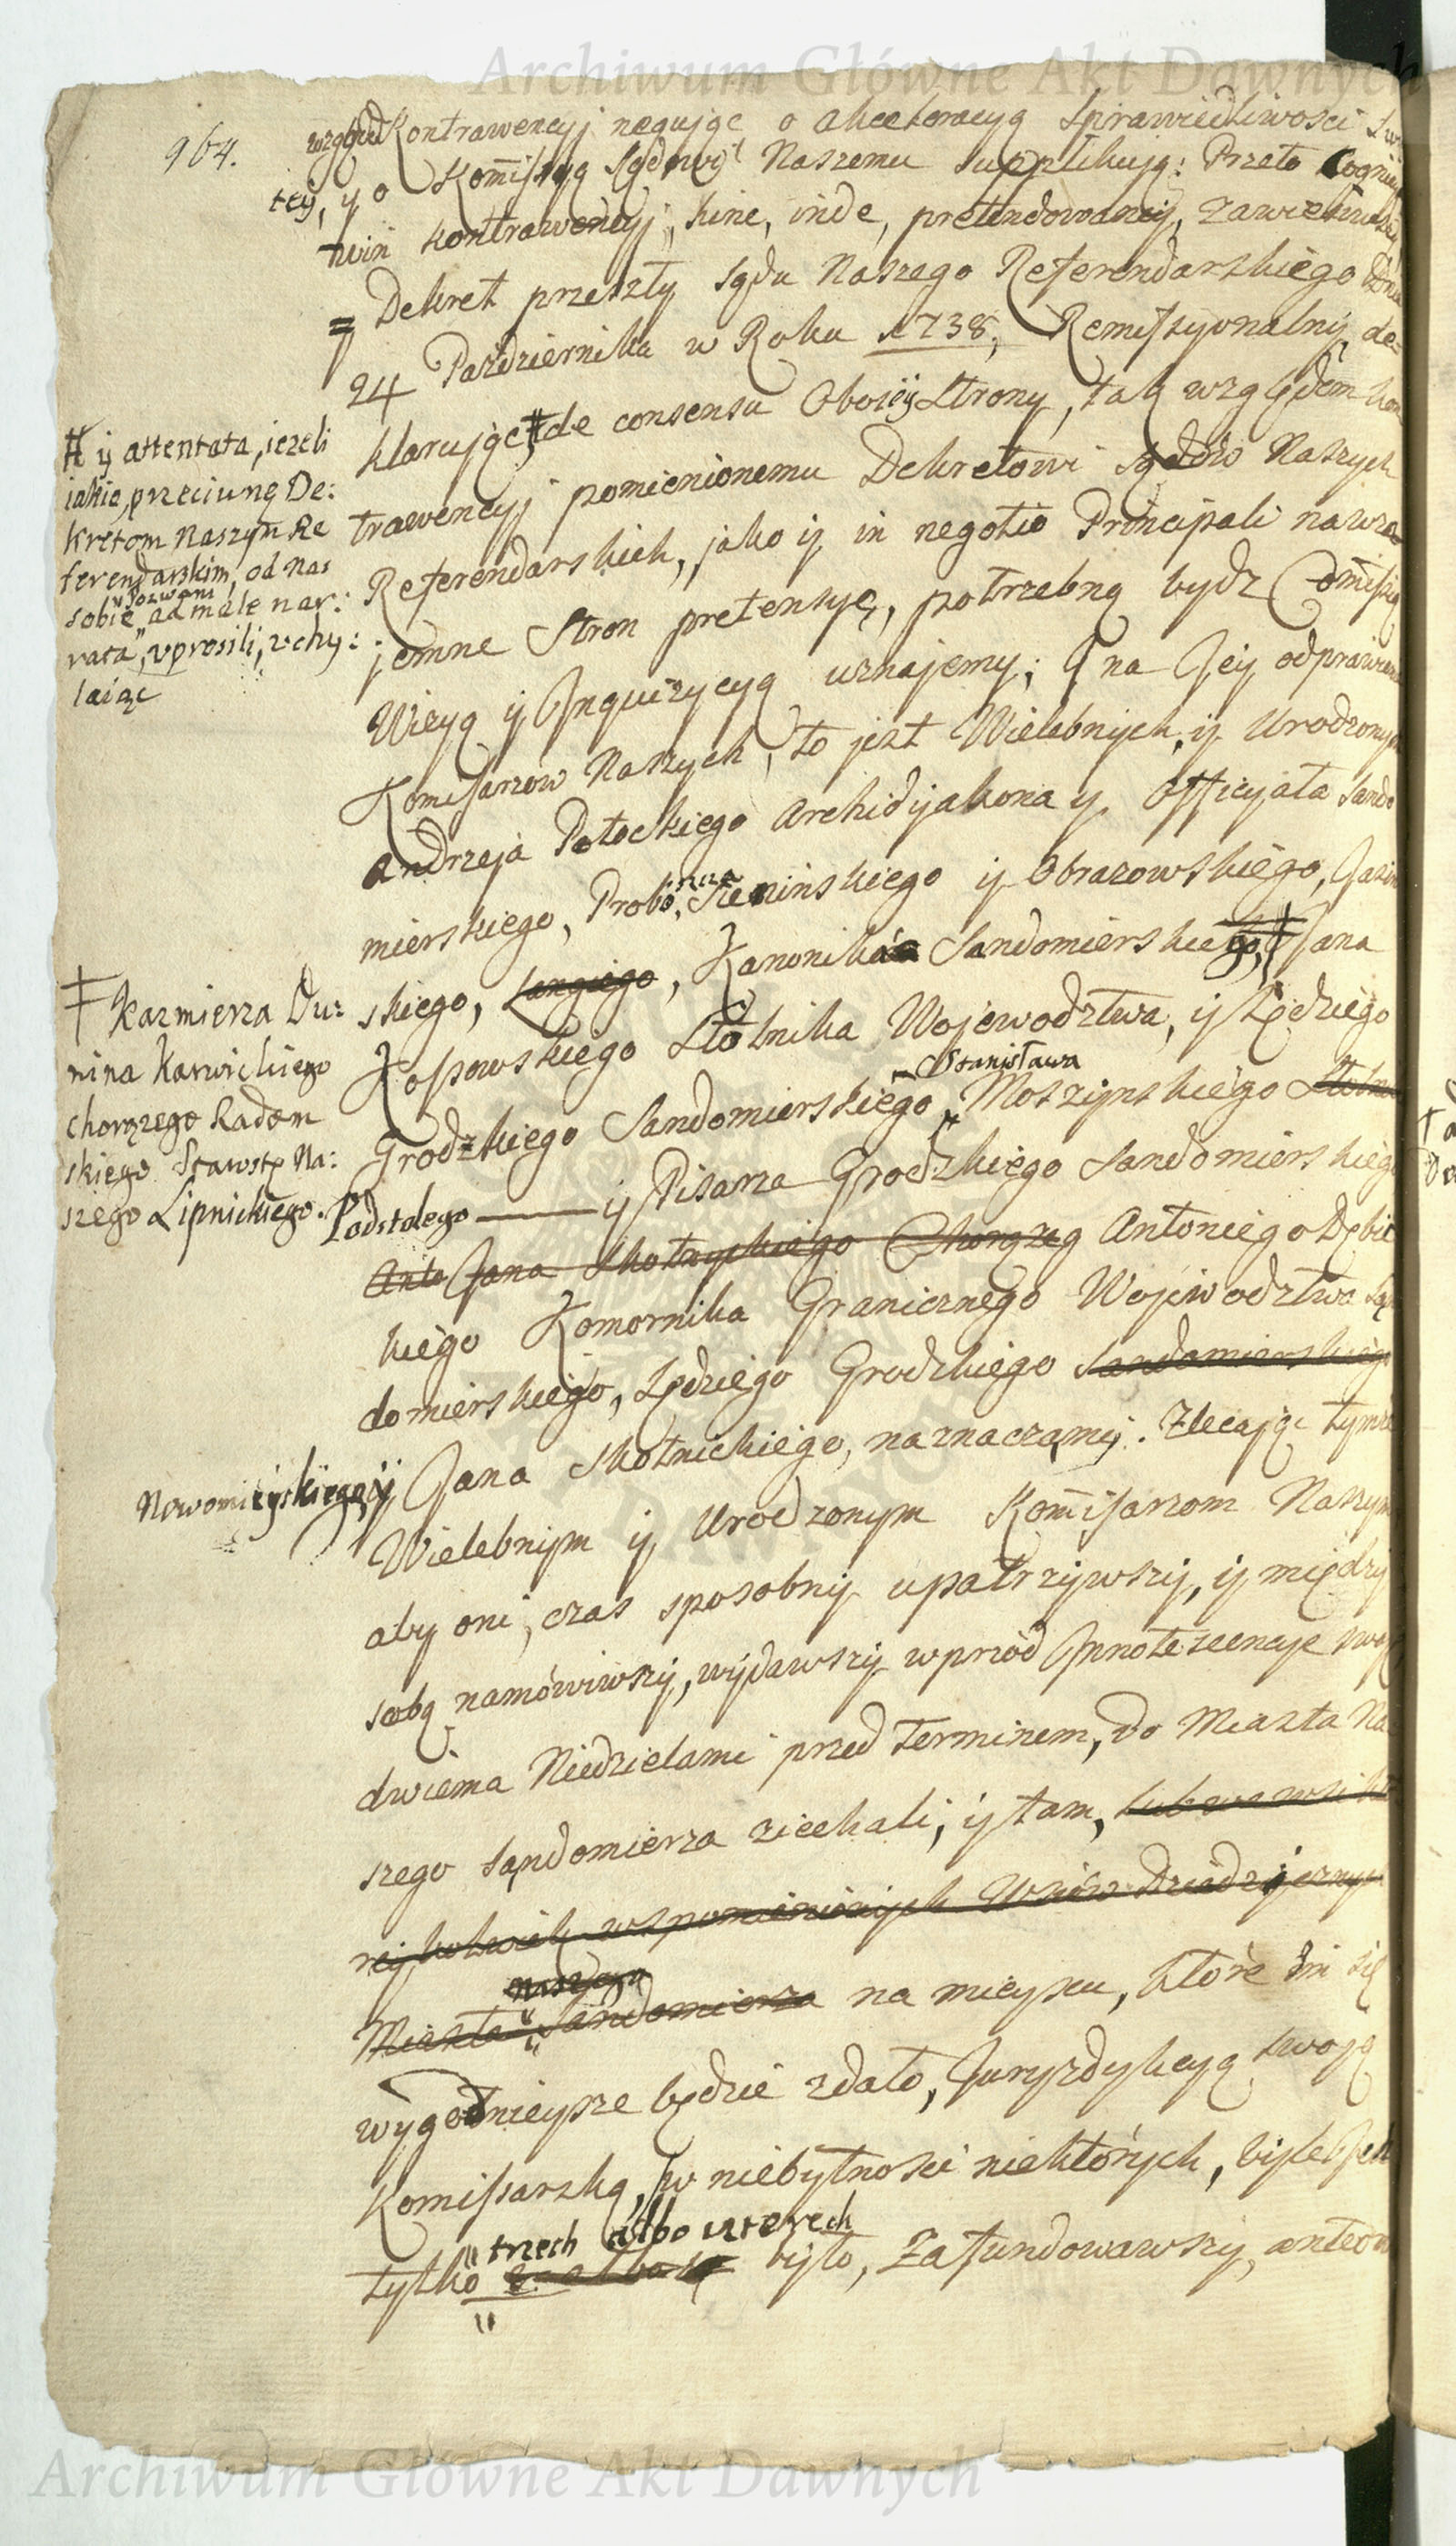 Archiwum Główne Akt Dawnych
964.
względ Kontrawencyj negując o akceleracyą Sprawiedliwości Swię
tey, y o Kom̄issyą Sądowi Naszemu supplikują: Przeto Cogni
kontrawencyj, hinc, inde, pretendowaney, zawiesiwszy
Dekret przeszły Sądu Naszego Referendarskiego Dnia
24 Października w Roku 1738, Remissyonalny, de=
klarując # de consensu Oboiey Strony, tak względem Kon
trawencyj pomienionemu Dekretowi Sądów Naszych
Referendarskich, jako y in negotio Principali nawza
jemne Stron pretensye, potrzebną bydz Com̄issyą
Wizyą y Inquizycyą uznajemy; I na Jey odprawienie
Komisarzow Naszych, to jest Wielebnych, y Urodzonych
Andrzeja Potockiego Archidyakona y Officyała Sando
mierskiego, Probo. Sienińskiego y Obrazowskiego, Jasin
skiego, Langiego, Kanonika Sandomierskiego, ‡ Jana
Kossowskiego Stolnika Wojewodztwa, y Sędziego
Grodzkiego Sandomierskiego, Stanisława Moszynskiego
Podstolego y Pisarza Grodzkiego Sandomierskiego
Jana Skotnickiego Chorążeg Antoniego Dębic
kiego Komornika Granicznego Wojewodztwa San
domierskiego, Sędziego Grodzkiego Sandomierskiego
Nowomieyskiego, y Jana Skotnickiego, naznaczamy. Zlecając tymże
Wielebnym y Urodzonym Kom̄isarzom Naszym
aby oni, czas sposobny upatrzywszy, y między
sobą namówiwszy, wydawszy wprzód Innotescencye swoje
dwiema Niedzielami przed Terminem, do Miasta Na
szego Sandomierza ziechali, y tam,
reykolwiek wspomnionych Wsiów Dziedzicznych
Miasta Naszego Sandomierza na mieyscu, które im się
wygodnieysze będzie zdało, Juryzdykcyą swoję
Komissarską, w niebytności niektórych, byleby Ich
tylko trzech albo czterech było, Zafundowawszy,
# y attentata, iezeli
iakie, przeciwną De:
kretom Naszym Re
ferendarskim, od nas
sobie Pozwani ad male nar:
rata, uprosili, uchy:
laiąc
‡ Kazmierza Du:
nina Karwickiego
chorązego Radom
skiego Starostę Na:
szego Lipnickiego.
Archiwum Główne Akt Dawnych